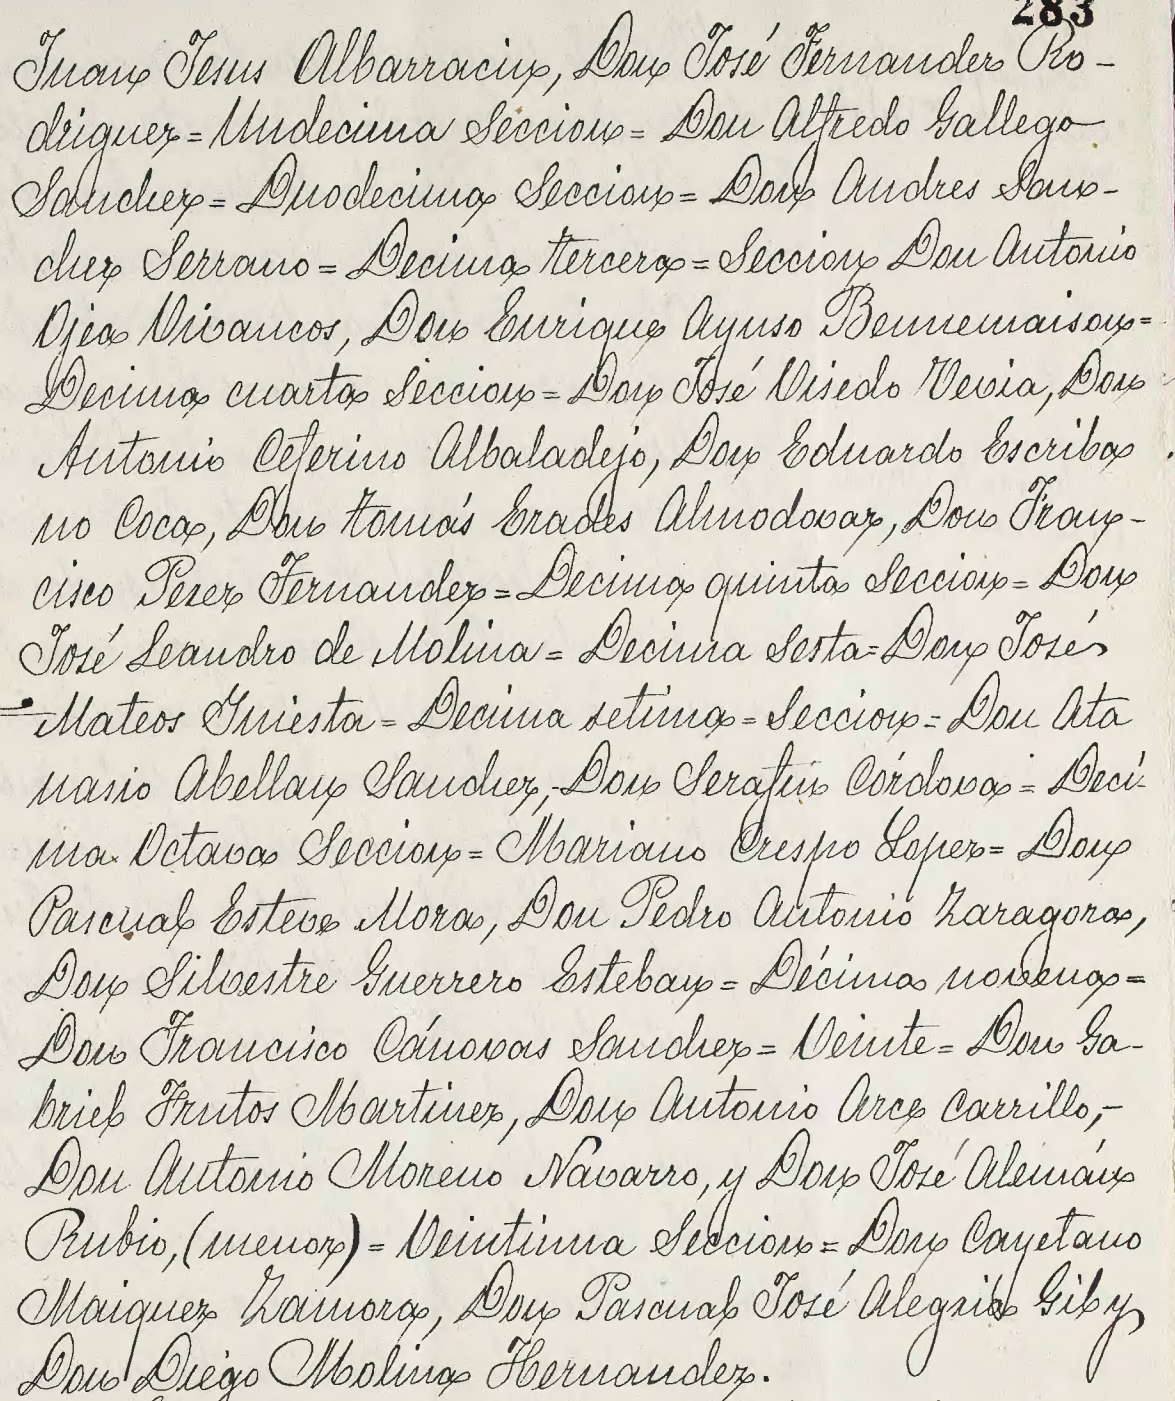 283
Juan Jesus Albarracin, Don José Fernandez Ro-
driguez = Undecima Seccion = Don Alfredo Gallego
Sanchez = Duodecima Seccion = Don Andres San-
chez Serrano = Decima tercera = Seccion Don Antonio
Ojea Vivancos, Don Enrique Ayuso Bennemaison =
Decima cuarta Seccion = Don José Visedo Vevia, Don
Antonio Ceferino Albaladejo, Don Eduardo Escriba
no Coca, Don tomás Erades Almodovar, Don Fran-
cisco Perez Fernandez = Decima quinta Seccion = Don
José Leandro de Molina = Decima Sesta = Don José
Mateos Yniesta = Decima setima = Seccion = Don Ata
nasio Abellan Sanchez, - Don Serafin Córdova = Deci-
ma Octava Seccion = Mariano Crespo Lopez = Don
Pascual Esteve Mora, Don Pedro Antonio Zaragoza,
Don Silvestre Guerrero Esteban = Décima novena =
Don Francisco Cánovas Sanchez = Veinte = Don Ga-
briel Frutos Martinez, Don Antonio Arce Carrillo, -
Don Antonio Moreno Navarro, y Don José Alemán
Rubio, (menor) = Veintiuna Seccion = Don Cayetano
Maiquez Zamora, Don Pascual José Alegria Gil y
Don Diego Molina Hernandez.